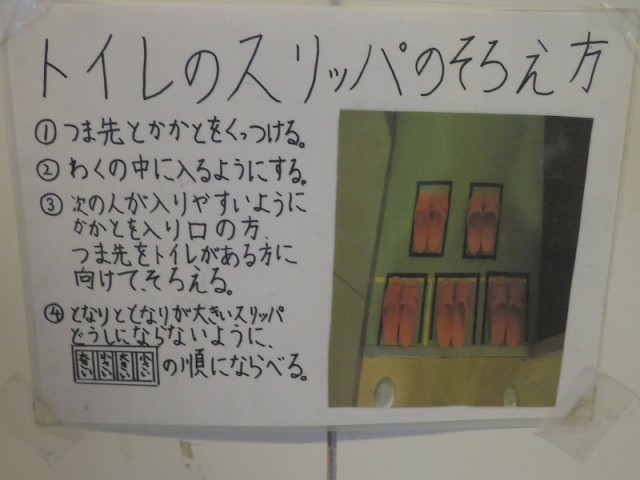 トイレのスリッパのそろえ方
①つま先とかかとをくっつける。
②わくの中に入るようにする。
③次の人が入りやすいように
かかとを入り口の方、
つま先をトイレがある方に
向けてそろえる。
④となりととなりが大きいスリッパ
どうしにならないように、
大きい 小さい 大きい 小さい の順にならべる。